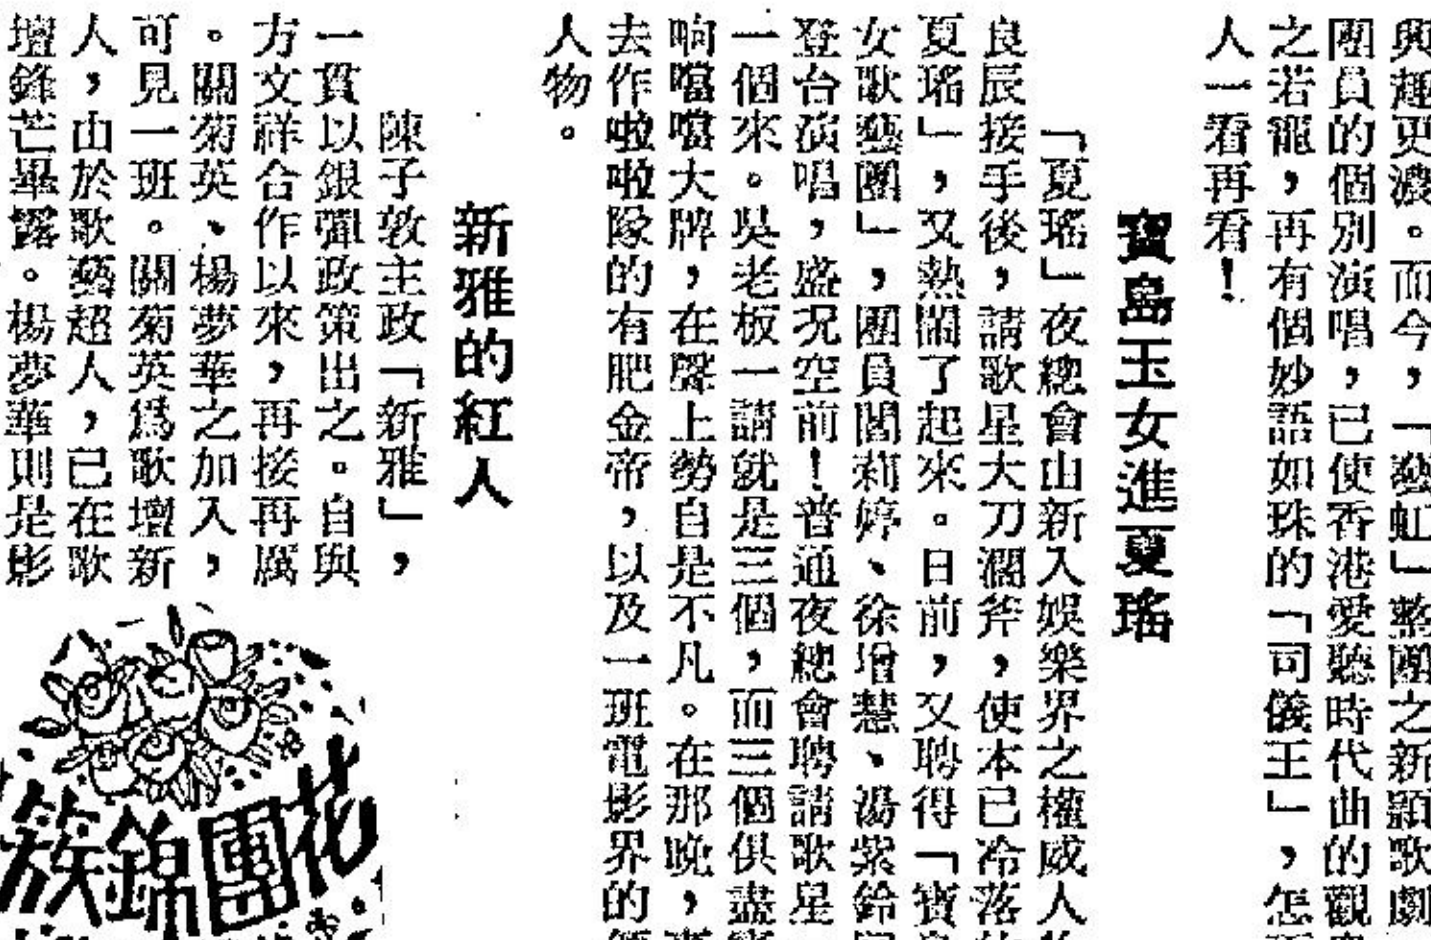 興趣更濃。而今，「藝虹」整團之新穎歌劇
團員的個別演唱，已使香港愛聽時代曲的觀
之若寵，再有個妙語如珠的「司儀王」，怎
人一看再看！
寶島玉女進夏瑤
「夏瑤」夜總會由新入娛樂界之權威人
良辰接手後，請歌星大刀濶斧，使本已冷落
夏瑤」，又熱鬧了起來。日前，又聘得「寶島
女歌藝團」，團員閻莉婷、徐增慧、湯紫鈴
登台演唱，盛況空前！普通夜總會聘請歌星
一個來。吳老板一請就是三個，而三個俱盡
响噹噹大牌，在聲上勢自是不凡。在那晚，
去作啦啦隊的有肥金帝，以及一班電影界的
人物。
新雅的紅人
陳子敦主政「新雅」，
一貫以銀彈政策出之。自與
方文祥合作以來，再接再厲
。關菊英、楊夢華之加入，
可見一班。關菊英爲歌壇新
人，由於歌藝超人，已在歌
壇鋒芒畢露。楊夢華則是影
花團錦簇